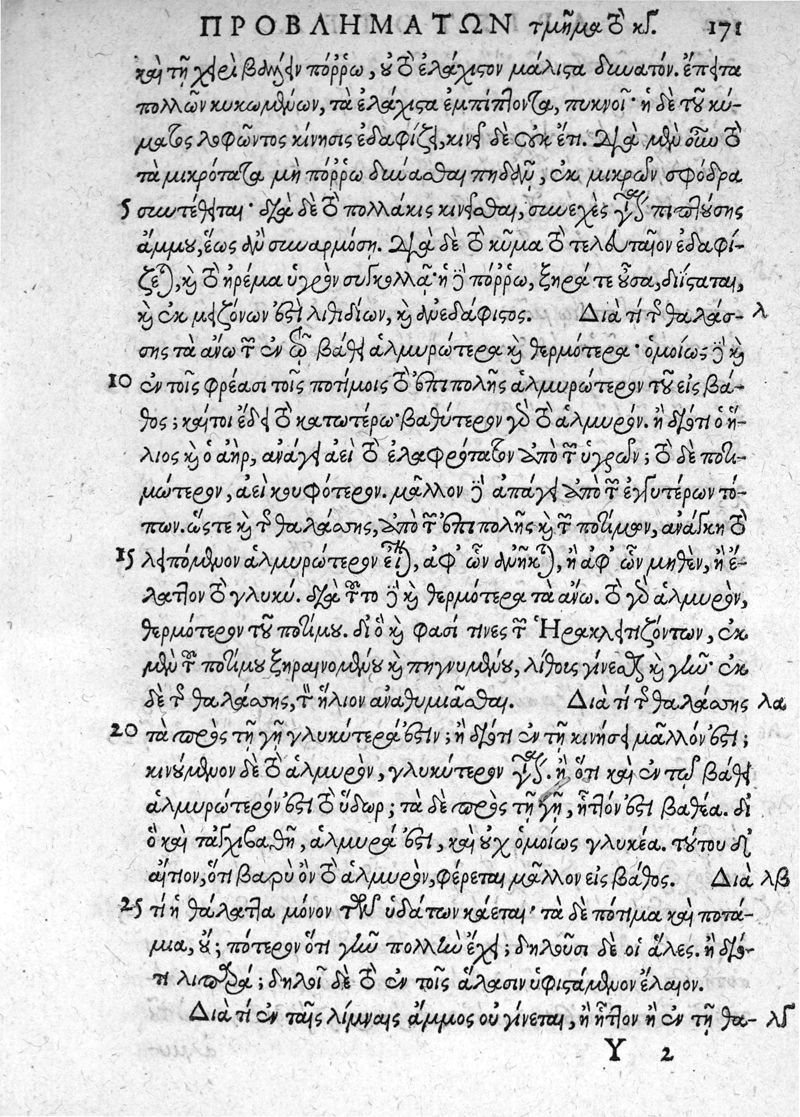 ΠΡΟΒΛΗΜΑΤΩΝ τμῆμα τὸ κγ. 171
καὶ τῇ χειρὶ βαλεῖν πόρρω, οὐ τὸ ἐλάχιστον μάλιστα δυνατόν. ἔπειτα
πολλῶν κυκωμένων, τὰ ἐλάχιστα ἐμπίπτοντα, πυκνοῖ· ἡ δὲ τοῦ κύ-
ματος λοφῶντος κίνησις ἐδαφίζει, κινεῖ δὲ οὐκ ἔτι. Διὰ μὲν οὖν τὸ
τὰ μικρότατα μὴ πόρρω δύνασθαι πηδᾶν, ἐκ μικρῶν σφόδρα
5 συντέθειται· διὰ δὲ τὸ πολλάκις κινεῖσθαι, συνεχὲς γίνεται πιπτούσης
ἄμμου, ἕως ἂν συναρμόσῃ. Διὰ δὲ τὸ κῦμα τὸ τελευταῖον ἐδαφί-
ζεται, καὶ τὸ ἠρέμα ὑγρὸν συγκολλᾷ· ἡ δὲ πόρρω, ξηρά τε οὖσα, διίσταται,
καὶ ἐκ μειζόνων ἐστὶ λιθιδίων, καὶ ἀνεδάφιστος. Διὰ τί τῆς θαλάσ- λ
σης τὰ ἄνω τῶν ἐν τῷ βάθει ἁλμυρώτερα καὶ θερμότερα· ὁμοίως δὲ καὶ
10 ἐν τοῖς φρέασι τοῖς ποτίμοις τὸ ἐπιπολῆς ἁλμυρώτερον τοῦ εἰς βά-
θος; καίτοι ἔδει τὸ κατωτέρω· βαθύτερον γὰρ τὸ ἁλμυρόν. ἢ διότι ὁ ἥ-
λιος καὶ ὁ ἀὴρ, ἀνάγει ἀεὶ τὸ ἐλαφρότατον ἀπὸ τῶν ὑγρῶν; τὸ δὲ ποτι-
μώτερον, ἀεὶ κουφότερον. μᾶλλον δὲ ἀπάγει ἀπὸ τῶν ἐγγυτέρων τό-
πων. ὥστε καὶ τῆς θαλάσσης, ἀπὸ τῶν ἐπιπολῆς καὶ τῶν ποτίμων, ἀνάγκη τὸ
15 λειπόμενον ἁλμυρώτερον εἶναι, ἀφ' ὧν ἀνῆκται, ἢ ἀφ' ὧν μηθὲν, ἢ ἔ-
λαττον τὸ γλυκύ. διὰ τοῦτο δὲ καὶ θερμότερα τὰ ἄνω. τὸ γὰρ ἁλμυρὸν,
θερμότερον τοῦ ποτίμου. διὸ καὶ φασί τινες τῶν Ἡρακλειτιζόντων, ἐκ
μὲν τοῦ ποτίμου ξηραινομένου καὶ πηγνυμένου, λίθους γίνεσθαι καὶ γῆν· ἐκ
δὲ τῆς θαλάσσης, τὸν ἥλιον ἀναθυμιᾶσθαι. Διὰ τί τῆς θαλάσσης λα
20 τὰ πρὸς τῇ γῇ γλυκύτερά ἐστιν; ἢ διότι ἐν τῇ κινήσει μᾶλλόν ἐστι;
κινούμενον δὲ τὸ ἁλμυρὸν, γλυκύτερον γίνεται. ἢ ὅτι καὶ ἐν τῷ βάθει
ἁλμυρώτερόν ἐστι τὸ ὕδωρ; τὰ δὲ πρὸς τῇ γῇ, ἧττόν ἐστι βαθέα. δι'
ὃ καὶ τἀγχιβαθῆ, ἁλμυρά ἐστι, καὶ οὐχ ὁμοίως γλυκέα. τούτου δ'
αἴτιον, ὅτι βαρὺ ὂν τὸ ἁλμυρὸν, φέρεται μᾶλλον εἰς βάθος. Διὰ λβ
25 τί ἡ θάλαττα μόνον τῶν ὑδάτων κάεται· τὰ δὲ πότιμα καὶ ποτά-
μια, οὔ; πότερον ὅτι γῆν πολλὴν ἔχει; δηλοῦσι δὲ οἱ ἅλες. ἢ διό-
τι λιπαρά; δηλοῖ δὲ τὸ ἐν τοῖς ἅλασιν ὑφιστάμενον ἔλαιον.
Διὰ τί ἐν ταῖς λίμναις ἄμμος οὐ γίνεται, ἢ ἧττον ἢ ἐν τῇ θα- λγ
Υ 2